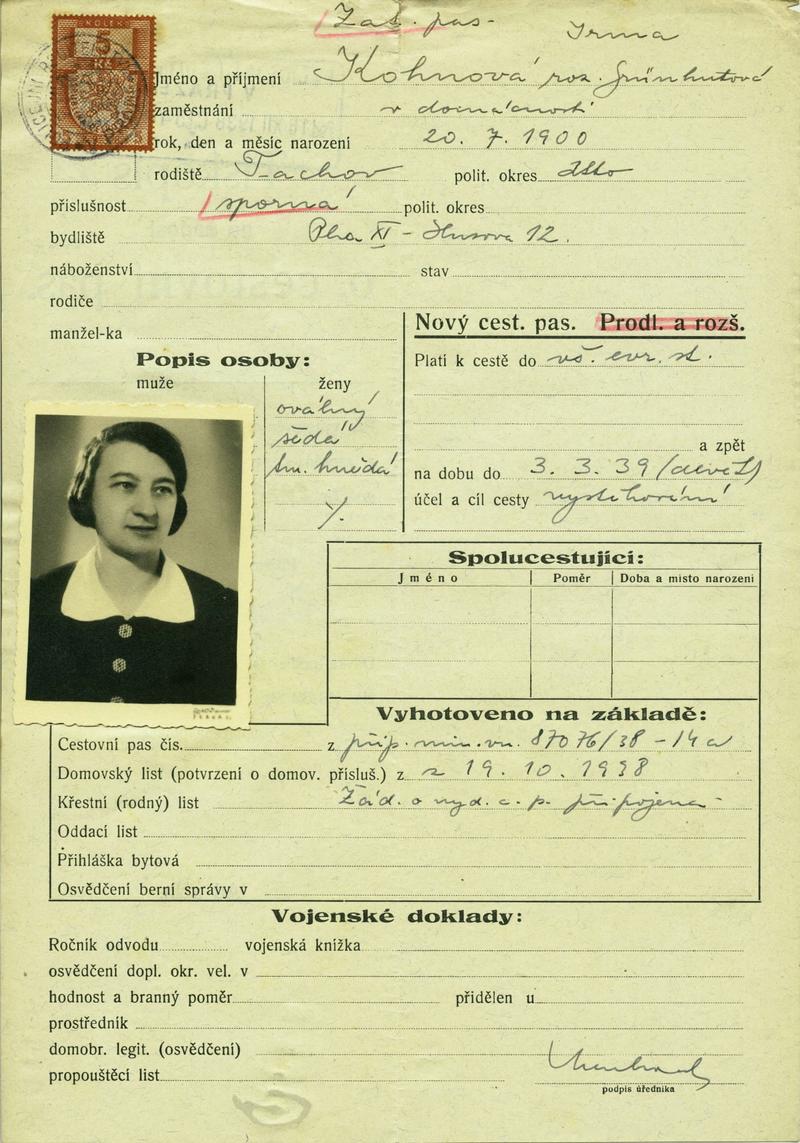 Zat. pas-
Irma
KOLEK
5
Kč
Jméno a příjmení Kohnová roz. Grünhutová
zaměstnání v domácnosti
rok, den a měsíc narození 20. 7. 1900
rodiště Tachov polit. okres dtto
příslušnost sporná polit. okres
bydliště Pha XI - Husova 12.
náboženství stav
rodiče
manžel-ka
Nový cest. pas. Prodl. a rozš.
Platí k cestě do vš. evr. st.
a zpět
na dobu do 3. 3. 39
účel a cíl cesty vystěhování
Popis osoby:
muže ženy
oválný
šedá
tm. hnědá
Spolucestující:
Jméno Poměr Doba a místo narození
Vyhotoveno na základě:
Cestovní pas čís. z příp. min. vn. 87076/38 - 14 a
Domovský list (potvrzení o domov. přísluš.) z z 19. 10. 1938
Křestní (rodný) list Žád. o vyd. c. p. připojena
Oddací list
Přihláška bytová
Osvědčení berní správy v
Vojenské doklady:
Ročník odvodu vojenská knížka
osvědčení dopl. okr. vel. v
hodnost a branný poměr přidělen u
prostředník
domobr. legit. (osvědčení)
propouštěcí list
podpis úředníka